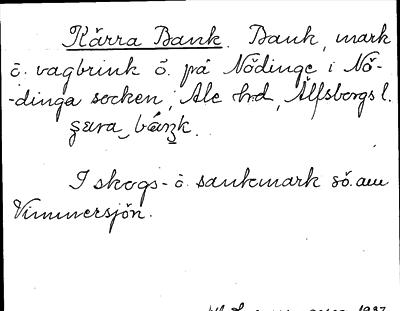 Kärra Bank. Bank, mark
o. vagbrink ö. på Nödinge i Nö-
-dinge socken, Ale hrd, Älfsborgs l.
I skogs- o. sankmark sö. om
Vimmersjön.
1937